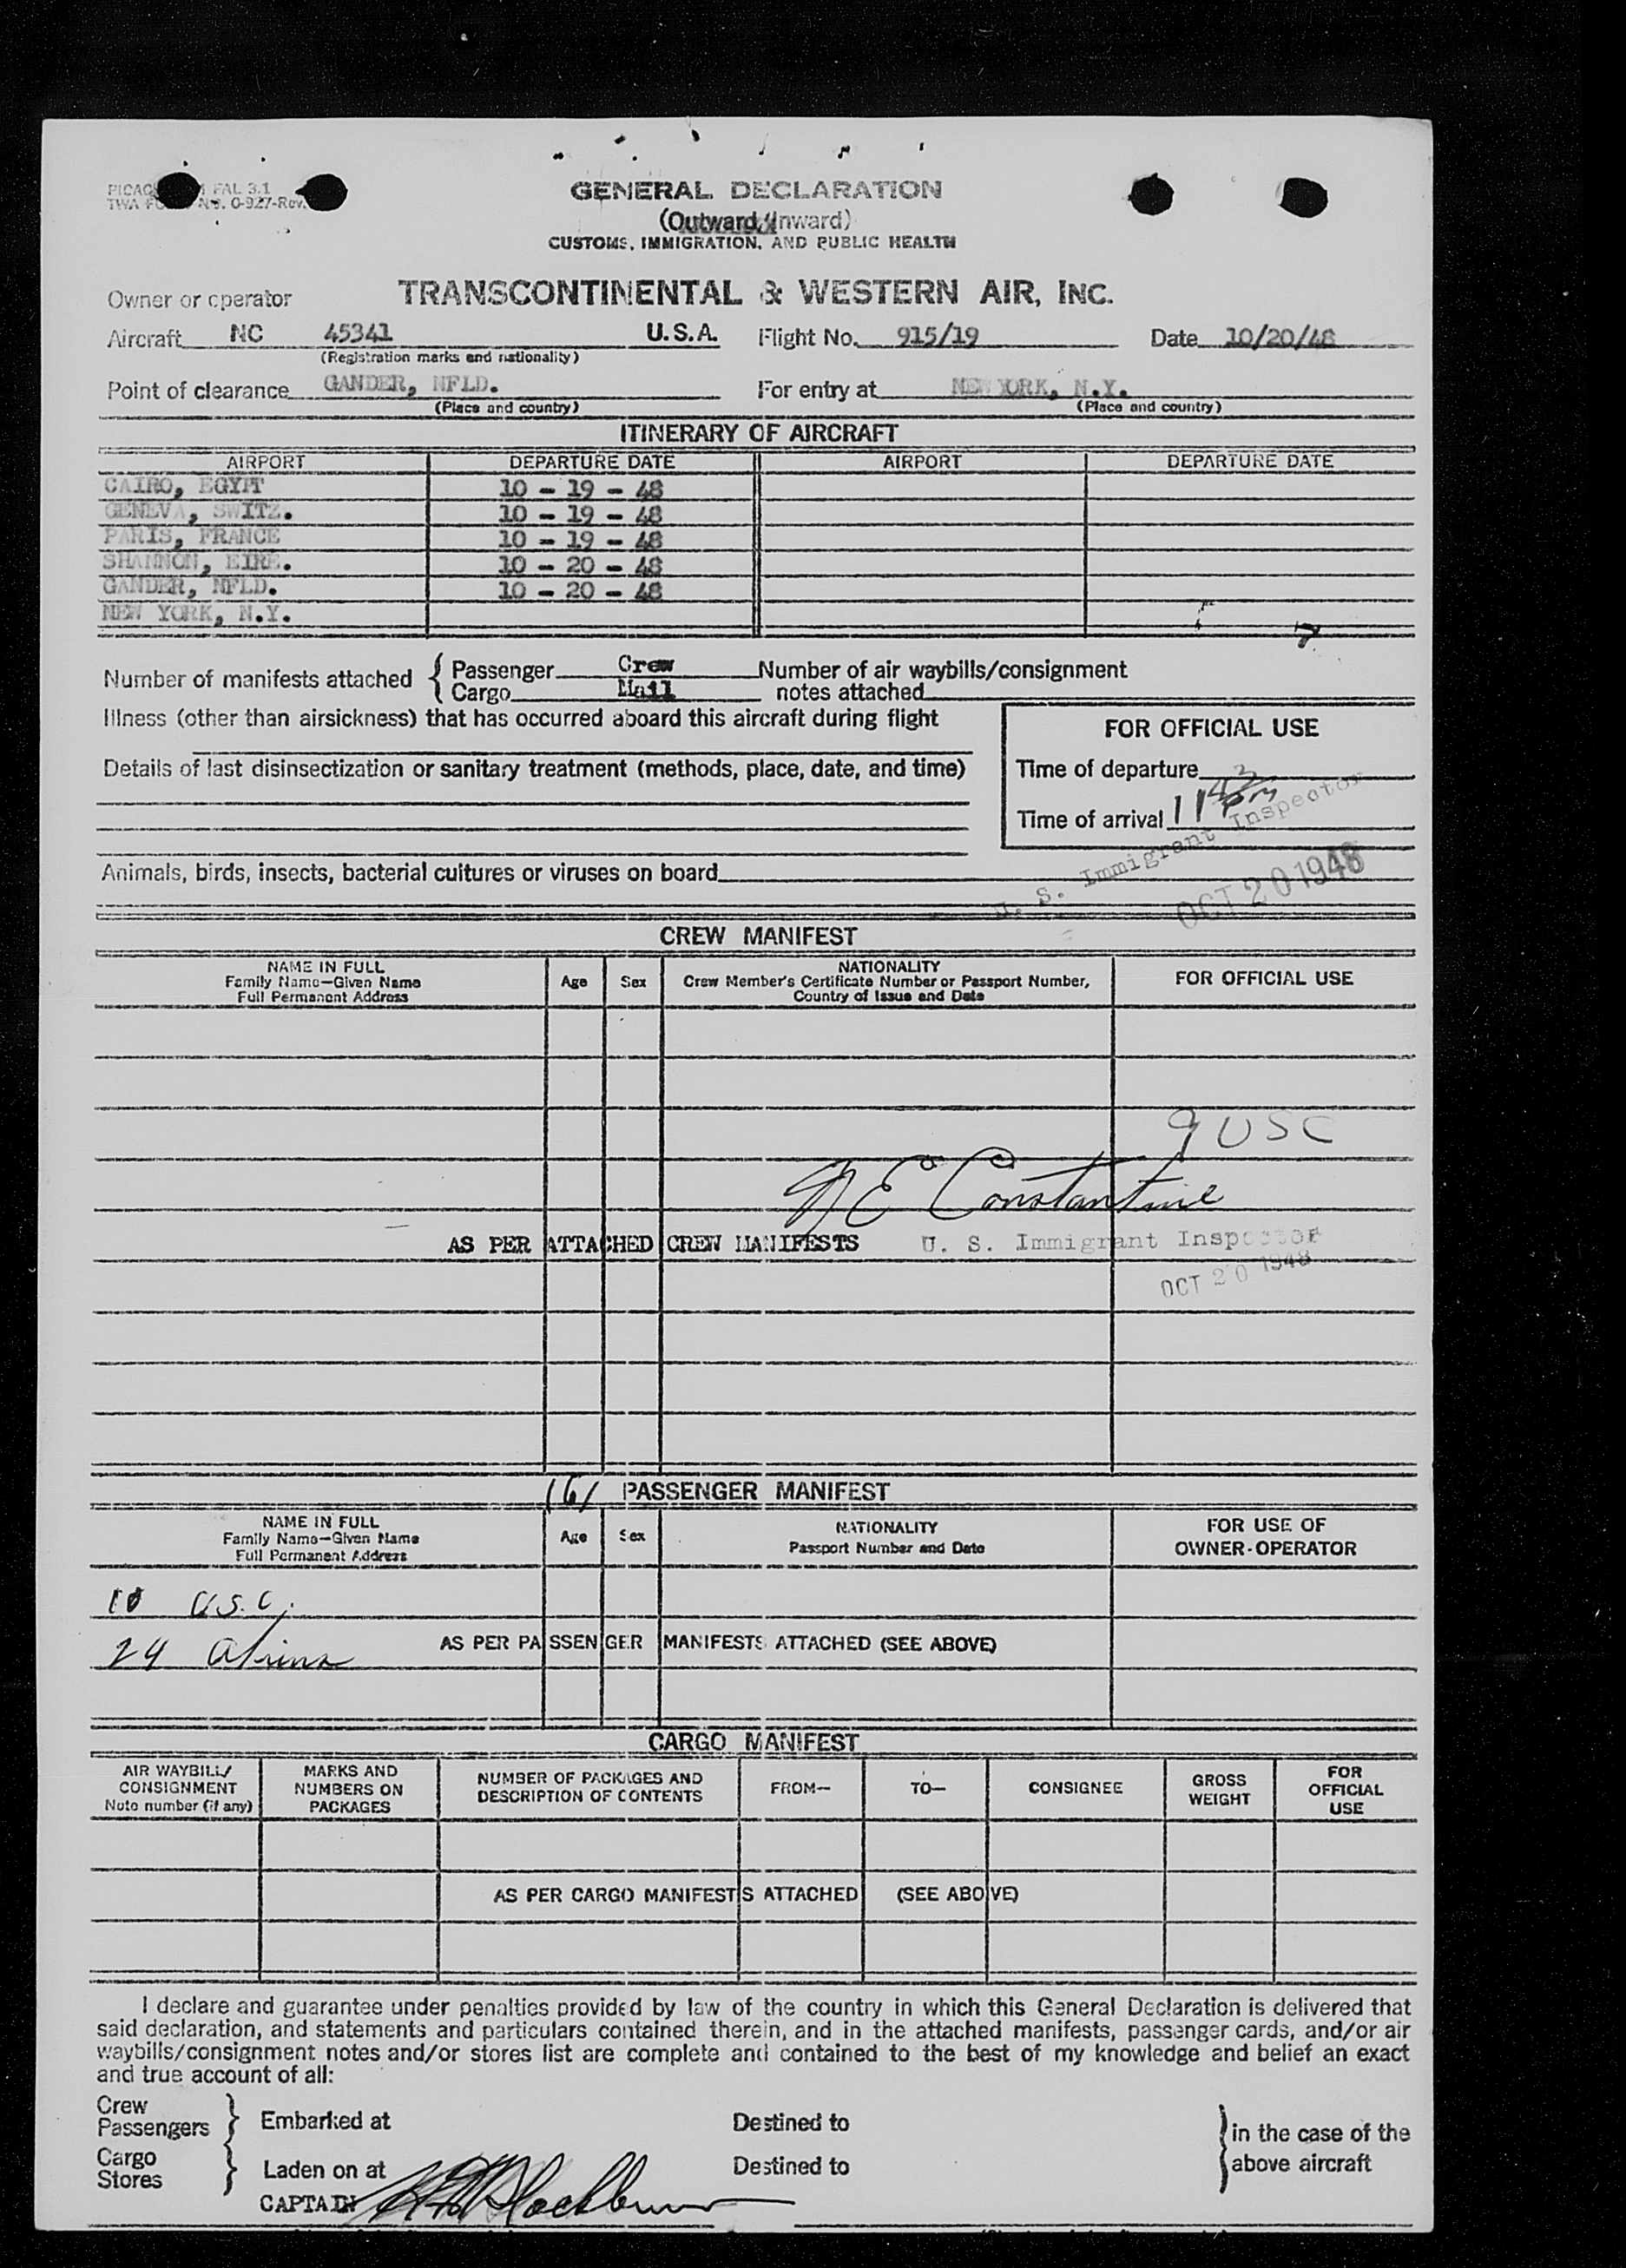 PICAO FAL 3.1
TWA FO NO. O-927-Rev.
GENERAL DECLARATION
(Outward/Inward)
CUSTOMS, IMMIGRATION, AND PUBLIC HEALTH
Owner or operator TRANSCONTINENTAL & WESTERN AIR, INC.
Aircraft NC 45341 U.S.A. Flight No. 915/19 Date 10/20/48
(Registration marks and nationality)
Point of clearance GANDER, NFLD. For entry at NEW YORK, N.Y.
(Place and country) (Place and country)
ITINERARY OF AIRCRAFT
AIRPORT DEPARTURE DATE AIRPORT DEPARTURE DATE
CAIRO, EGYPT 10 - 19 - 48
GENEVA, SWITZ. 10 - 19 - 48
PARIS, FRANCE 10 - 19 - 48
SHANNON, EIRE. 10 - 20 - 48
GANDER, NFLD. 10 - 20 - 48
NEW YORK, N.Y.
Number of manifests attached { Passenger Crew Number of air waybills/consignment
Cargo Mail notes attached
Illness (other than airsickness) that has occurred aboard this aircraft during flight
FOR OFFICIAL USE
Details of last disinsectization or sanitary treatment (methods, place, date, and time)
Time of departure
Time of arrival 11 43 pm
U. S. Immigrant Inspector
OCT 20 1948
Animals, birds, insects, bacterial cultures or viruses on board
CREW MANIFEST
NAME IN FULL Age Sex NATIONALITY FOR OFFICIAL USE
Family Name—Given Name Crew Member's Certificate Number or Passport Number,
Full Permanent Address Country of Issue and Date
9 USC
N E Constantine
AS PER ATTACHED CREW MANIFESTS U. S. Immigrant Inspector
OCT 20 1948
(6) PASSENGER MANIFEST
NAME IN FULL Age Sex NATIONALITY FOR USE OF
Family Name—Given Name Passport Number and Date OWNER-OPERATOR
Full Permanent Address
10 U.S.C.
24 Aliens AS PER PASSENGER MANIFESTS ATTACHED (SEE ABOVE)
CARGO MANIFEST
AIR WAYBILL/ MARKS AND NUMBER OF PACKAGES AND FROM— TO— CONSIGNEE GROSS FOR
CONSIGNMENT NUMBERS ON DESCRIPTION OF CONTENTS WEIGHT OFFICIAL
Note number (if any) PACKAGES USE
AS PER CARGO MANIFESTS ATTACHED (SEE ABOVE)
I declare and guarantee under penalties provided by law of the country in which this General Declaration is delivered that
said declaration, and statements and particulars contained therein, and in the attached manifests, passenger cards, and/or air
waybills/consignment notes and/or stores list are complete and contained to the best of my knowledge and belief an exact
and true account of all:
Crew
Passengers } Embarked at Destined to } in the case of the
Cargo
Stores } Laden on at Destined to above aircraft
CAPTAIN Blackburn